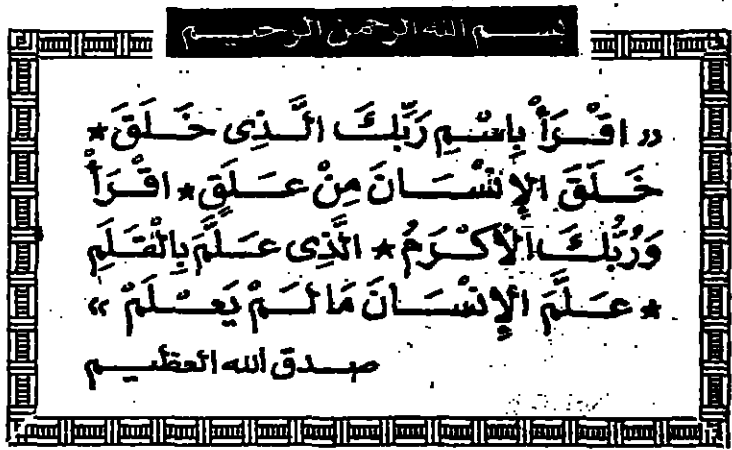 بسم الله الرحمن الرحيم
«اقْرَأْ بِاسْمِ رَبِّكَ الَّذِى خَلَقَ *
خَلَقَ الإِنْسَانَ مِنْ عَلَقٍ * اقْرَأْ
وَرَبُّكَ الْأَكْرَمُ * الَّذِى عَلَّمَ بِالْقَلَمِ
* عَلَّمَ الْإِنْسَانَ مَا لَمْ يَعْلَمْ»
صدق الله العظيم